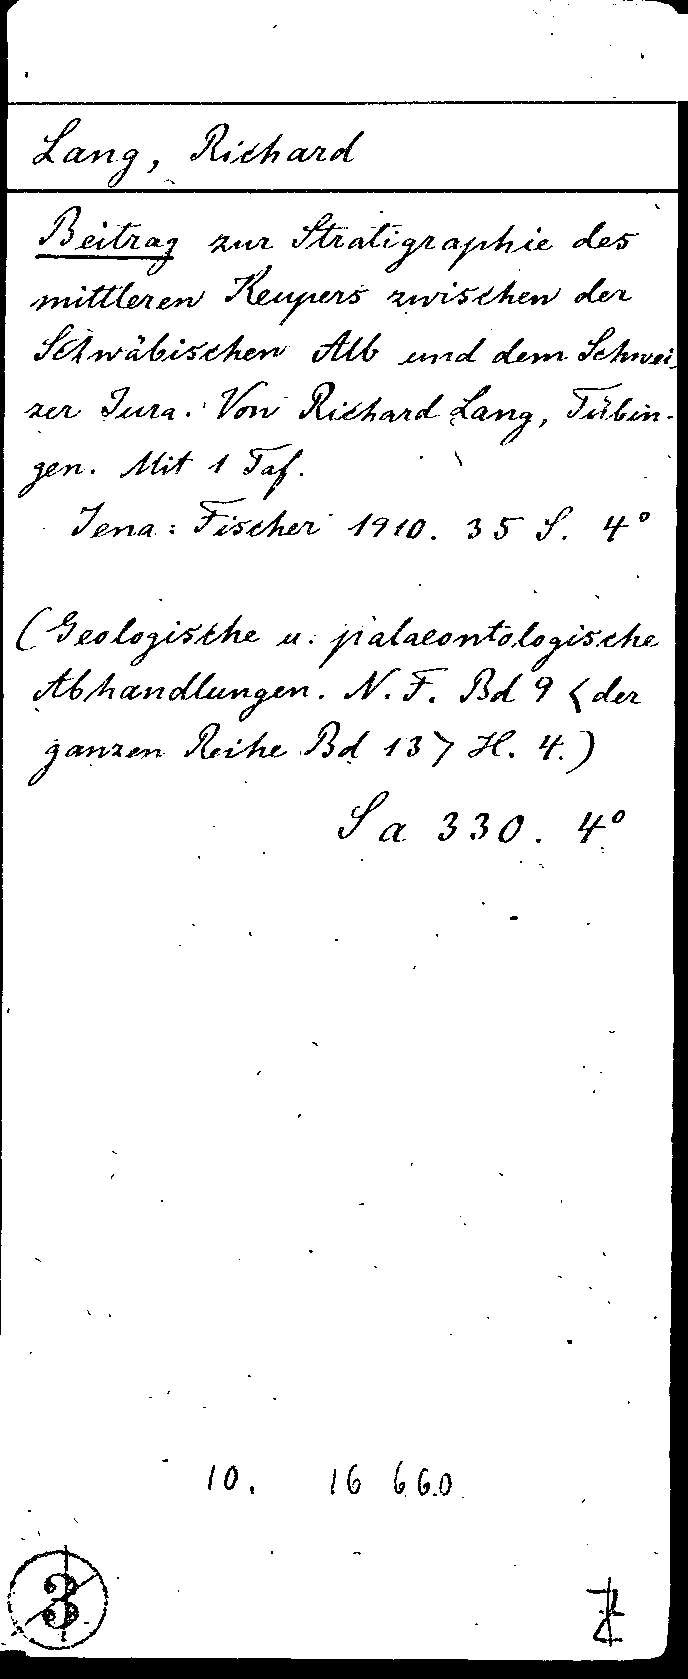 Lang, Richard
Beitrag zur Stratigraphie des
mittleren Keupers zwischen der
Schwäbischen Alb und dem Schwei-
zer Jura. Von Richard Lang, Tübin-
gen. Mit 1 Taf.
Jena: Fischer 1910. 35 S. 4°
(Geologische u. palaeontologische
Abhandlungen. N. F. Bd 9 <der
ganzen Reihe Bd 13> H. 4.)
Sa 330. 4°
10. 16 660
3